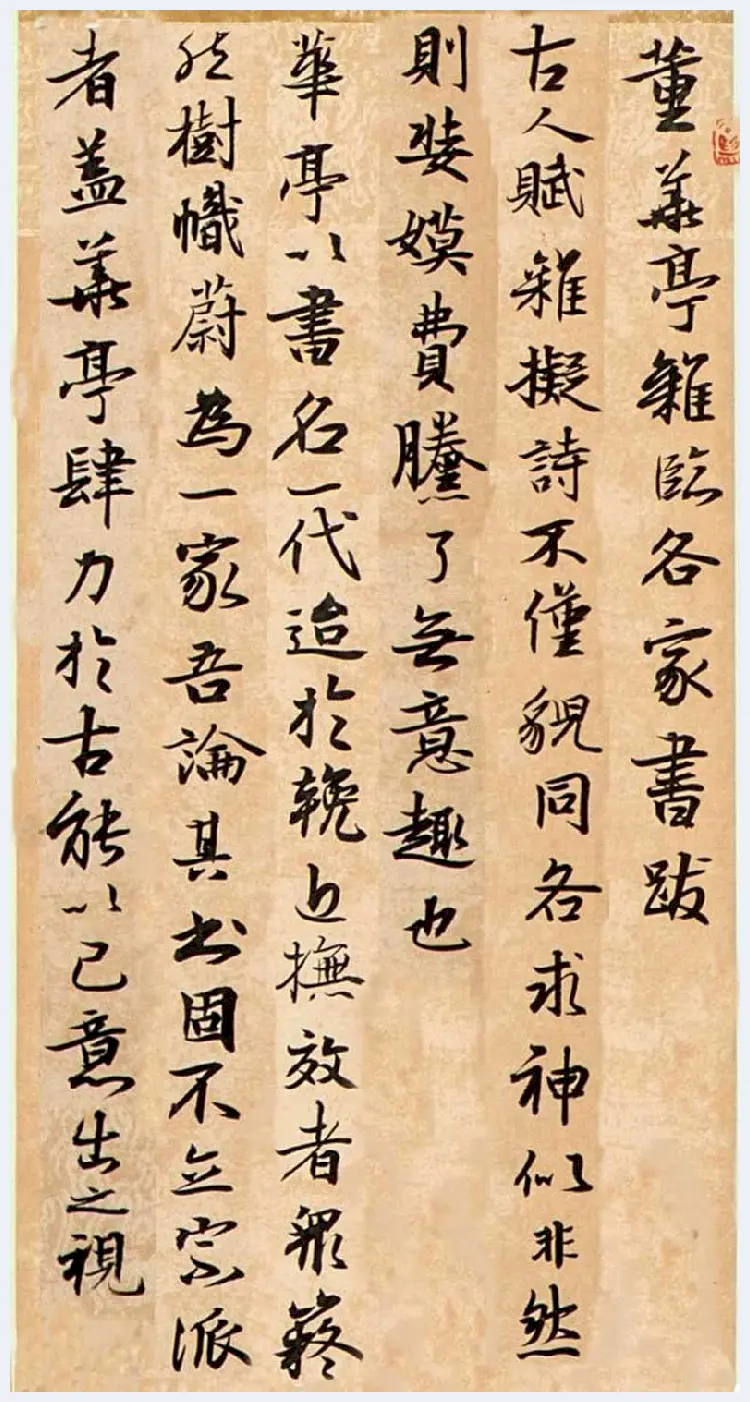 董華亭雜臨各家書跋
古人賦雜擬詩不僅貌同各求神似非然
則娤嫫費黱了無意趣也
華亭以書名一代迨於輓近撫效者眾嶷
然樹幟蔚為一家吾論其書固不立宗派
者蓋華亭肆力於古能以己意出之視